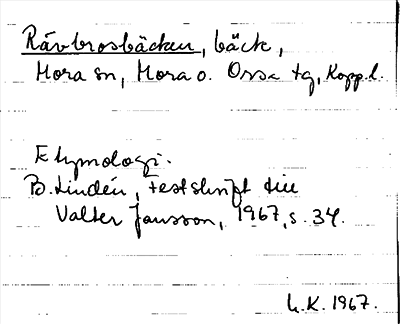 Rävbrosbäcken, bäck,
Mora sn, Mora o. Orsa tg, Kopp.l.
Etymologi.
B. Lindén, Festskrift till
Valter Jansson, 1967, s. 34.
L.K. 1967.